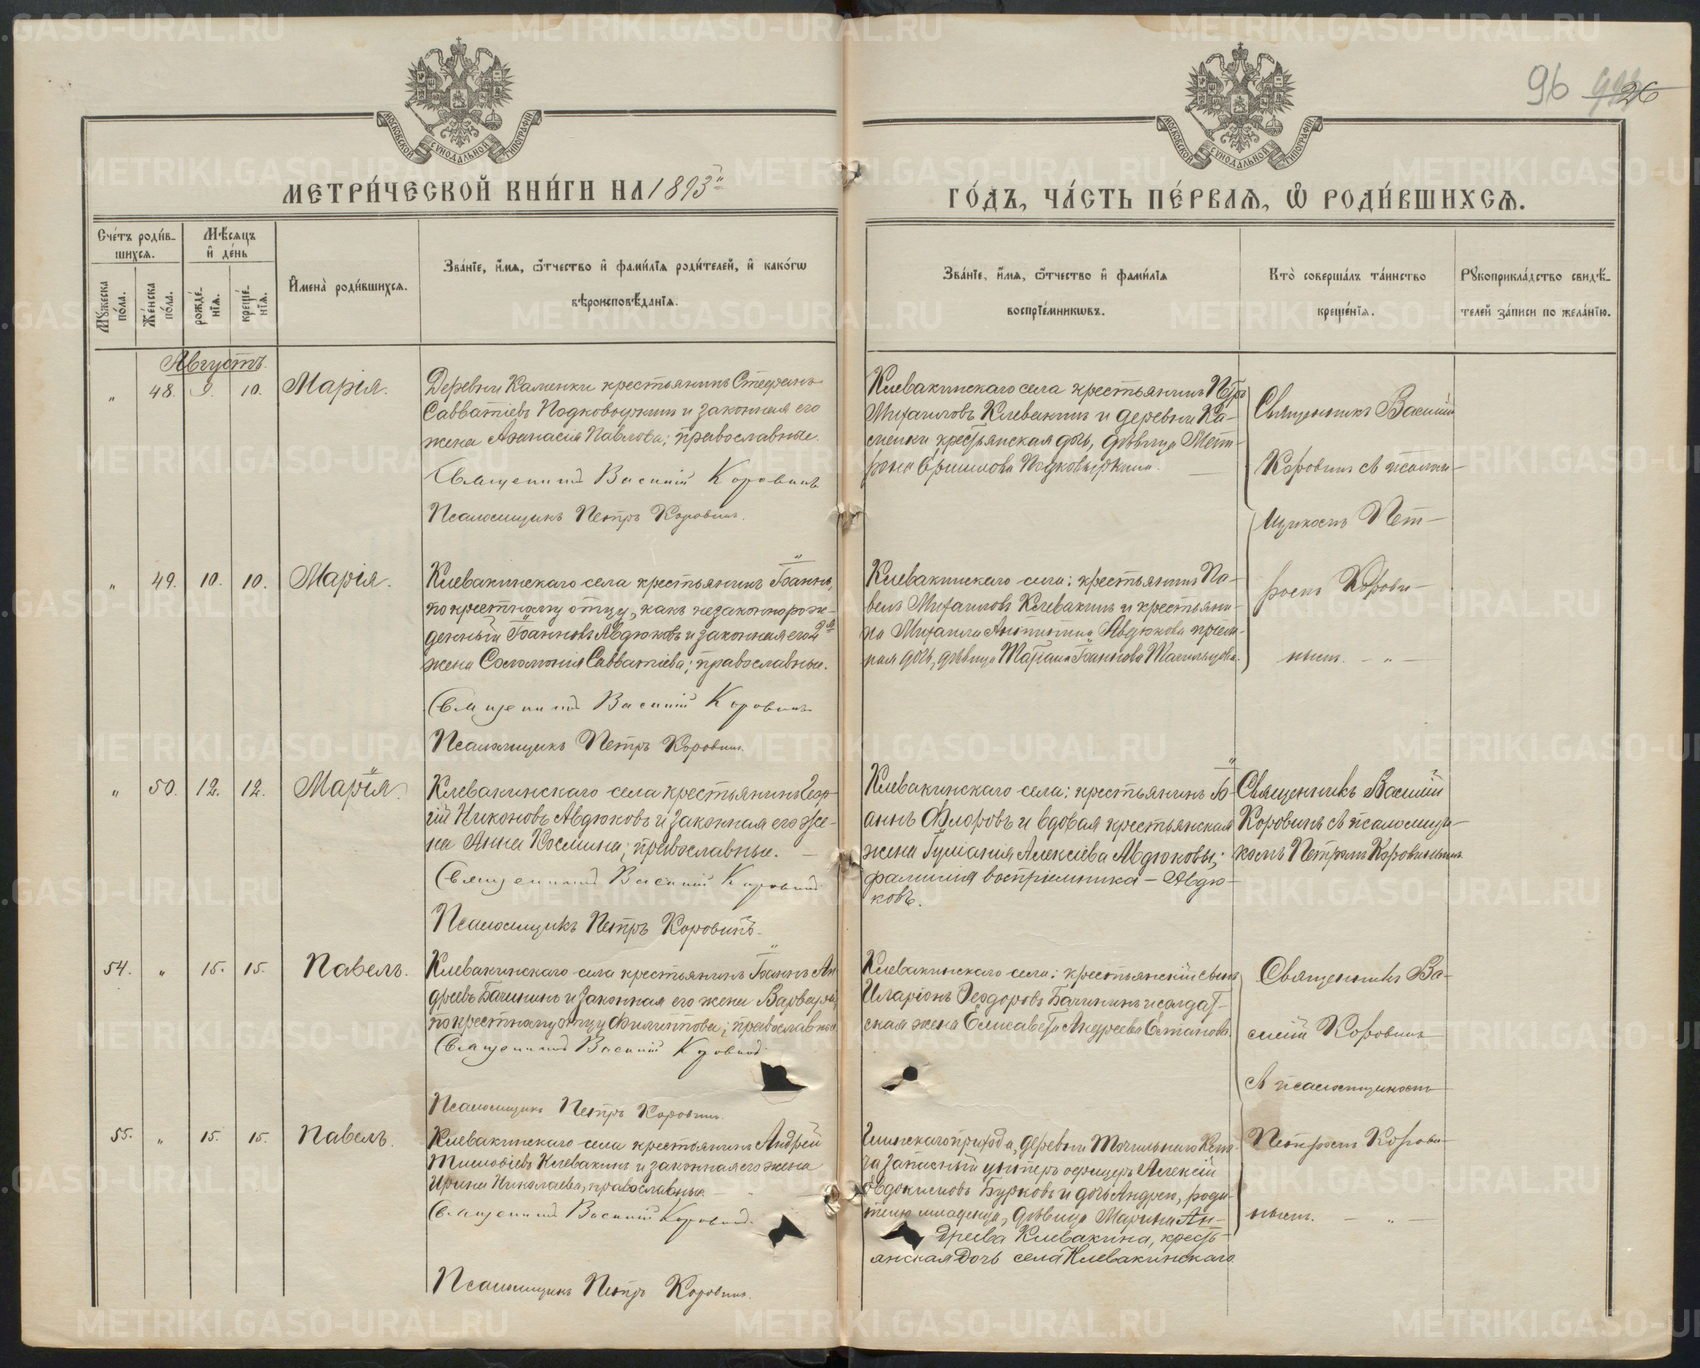 METRIKI.GASO-URAL.RU
96 26
МОСКОВСКОЙ СѴНОДАЛЬНОЙ ТИПОГРАФІИ
МОСКОВСКОЙ СѴНОДАЛЬНОЙ ТИПОГРАФІИ
МЕТРИ́ЧЕСКОЙ КНИ́ГИ НА 1893й
ГО́ДЪ, ЧА́СТЬ ПЕ́РВАЯ, Ѡ҆ РОДИ́ВШИХСЯ.
Сче́тъ роди́в-
шихся.
Мѣ́сяцъ
и҆ де́нь
Му́жеска
по́ла.
Же́нска
по́ла.
рожде́-
нїя.
креще́-
нїя.
И҆мена̀ роди́вшихся.
Зва́нїе, и҆́мя, ѻ҆́тчество и҆ фами́лїя роди́телей, и҆ како́гѡ
вѣроисповѣ́данїя.
Зва́нїе, и҆́мя, ѻ҆́тчество и҆ фами́лїя
воспрїе́мникѡвъ.
Кто̀ соверша́лъ та́инство
креще́нїя.
Рꙋкоприкла́дство свидѣ́-
телей за́писи по жела́нїю.
Августъ.
„ 48. 9. 10. Марія.
Деревни Каменки крестьянинъ Стефанъ
Савватіевъ Подковыркинъ и законная его
жена Аѳанасія Павлова; православные.
Священникъ Василій Коровинъ
Псаломщикъ Петръ Коровинъ.
Клевакинскаго села крестьянинъ Петръ
Михаиловъ Клевакинъ и деревни Ка-
менки крестьянская дочь, дѣвица Мат-
рона Подковыркина.
Священникъ Василій
Коровинъ съ псалом-
щикомъ Пет-
ромъ Корови-
нымъ. — „ —
„ 49. 10. 10. Марія.
Клевакинскаго села крестьянинъ Іоаннъ,
по крестному отцу, какъ незаконнорож-
денный Іоанновъ Авдюковъ и законная его 2я
жена Соломонія Савватіева; православные.
Священникъ Василій Коровинъ
Псаломщикъ Петръ Коровинъ.
Клевакинскаго села: крестьянинъ Па-
велъ Михаиловъ Клевакинъ и крестьяни-
на Михаила Авдюкова пріем-
ная дочь, дѣвица Іоаннова
„ 50. 12. 12. Марія.
Клевакинскаго села крестьянинъ Геор-
гій Никоновъ Авдюковъ и законная его же-
на Анна Космина; православные. —
Священникъ Василій Коровинъ
Псаломщикъ Петръ Коровинъ.
Клевакинскаго села: крестьянинъ Іо-
аннъ Флоровъ и вдовая крестьянская
жена Алексіева Авдюковы;
фамилия воспріемника — Авдю-
ковъ.
Священникъ Василій
Коровинъ съ псаломщи-
комъ Петромъ Коровинымъ
54. „ 15. 15. Павелъ.
Клевакинскаго села крестьянинъ Іоаннъ Ан-
дреевъ Бачининъ и законная его жена Варвара,
по крестному отцу Филиппова; православные
Священникъ Василій Коровинъ
Псаломщикъ Петръ Коровинъ.
Клевакинскаго села: крестьянскій сынъ
Иларіонъ Ѳеодоровъ Бачининъ и солдат-
ская жена Елисавета Андреева
Священникъ Ва-
силій Коровинъ
съ псаломщикомъ
Петромъ Корови-
нымъ. — „ —
55. „ 15. 15. Павелъ.
Клевакинскаго села крестьянинъ Андрей
Клевакинъ и законная его жена
Ирина Николаева, православные —
Священникъ Василій Коровинъ.
Псаломщикъ Петръ Коровинъ.
прихода, деревни Точильнаго Клю-
ча запасный унтеръ офицеръ Алексій
Евдокимовъ Бурковъ и дочь Андрея, роди-
теля младенца, дѣвица Марина Ан-
дреева Клевакина, кресть-
янская дочь села Клевакинскаго